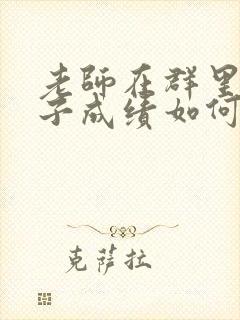 老師在群里
子成绩如何
克薩拉